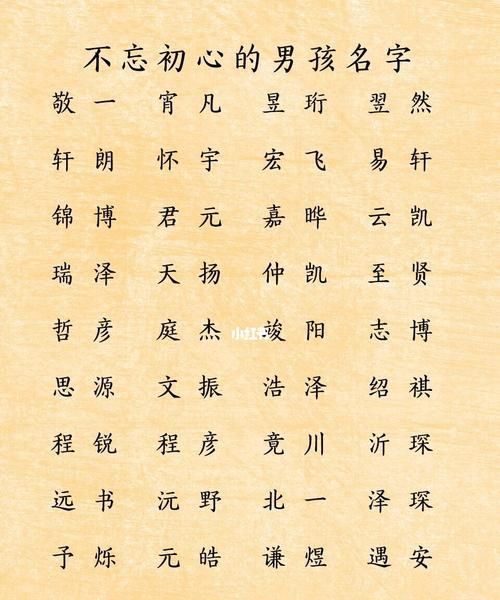 不忘初心的男孩名字
敬一 宵凡 昱珩 翌然
轩朗 怀宇 宏飞 易轩
锦博 君元 嘉晔 云凯
瑞泽 天扬 仲凯 至贤
哲彦 庭杰 竣阳 志博
思源 文振 浩泽 绍祺
程锐 程彦 竟川 沂琛
远书 沅野 北一 泽琛
予烁 元皓 谦煜 遇安